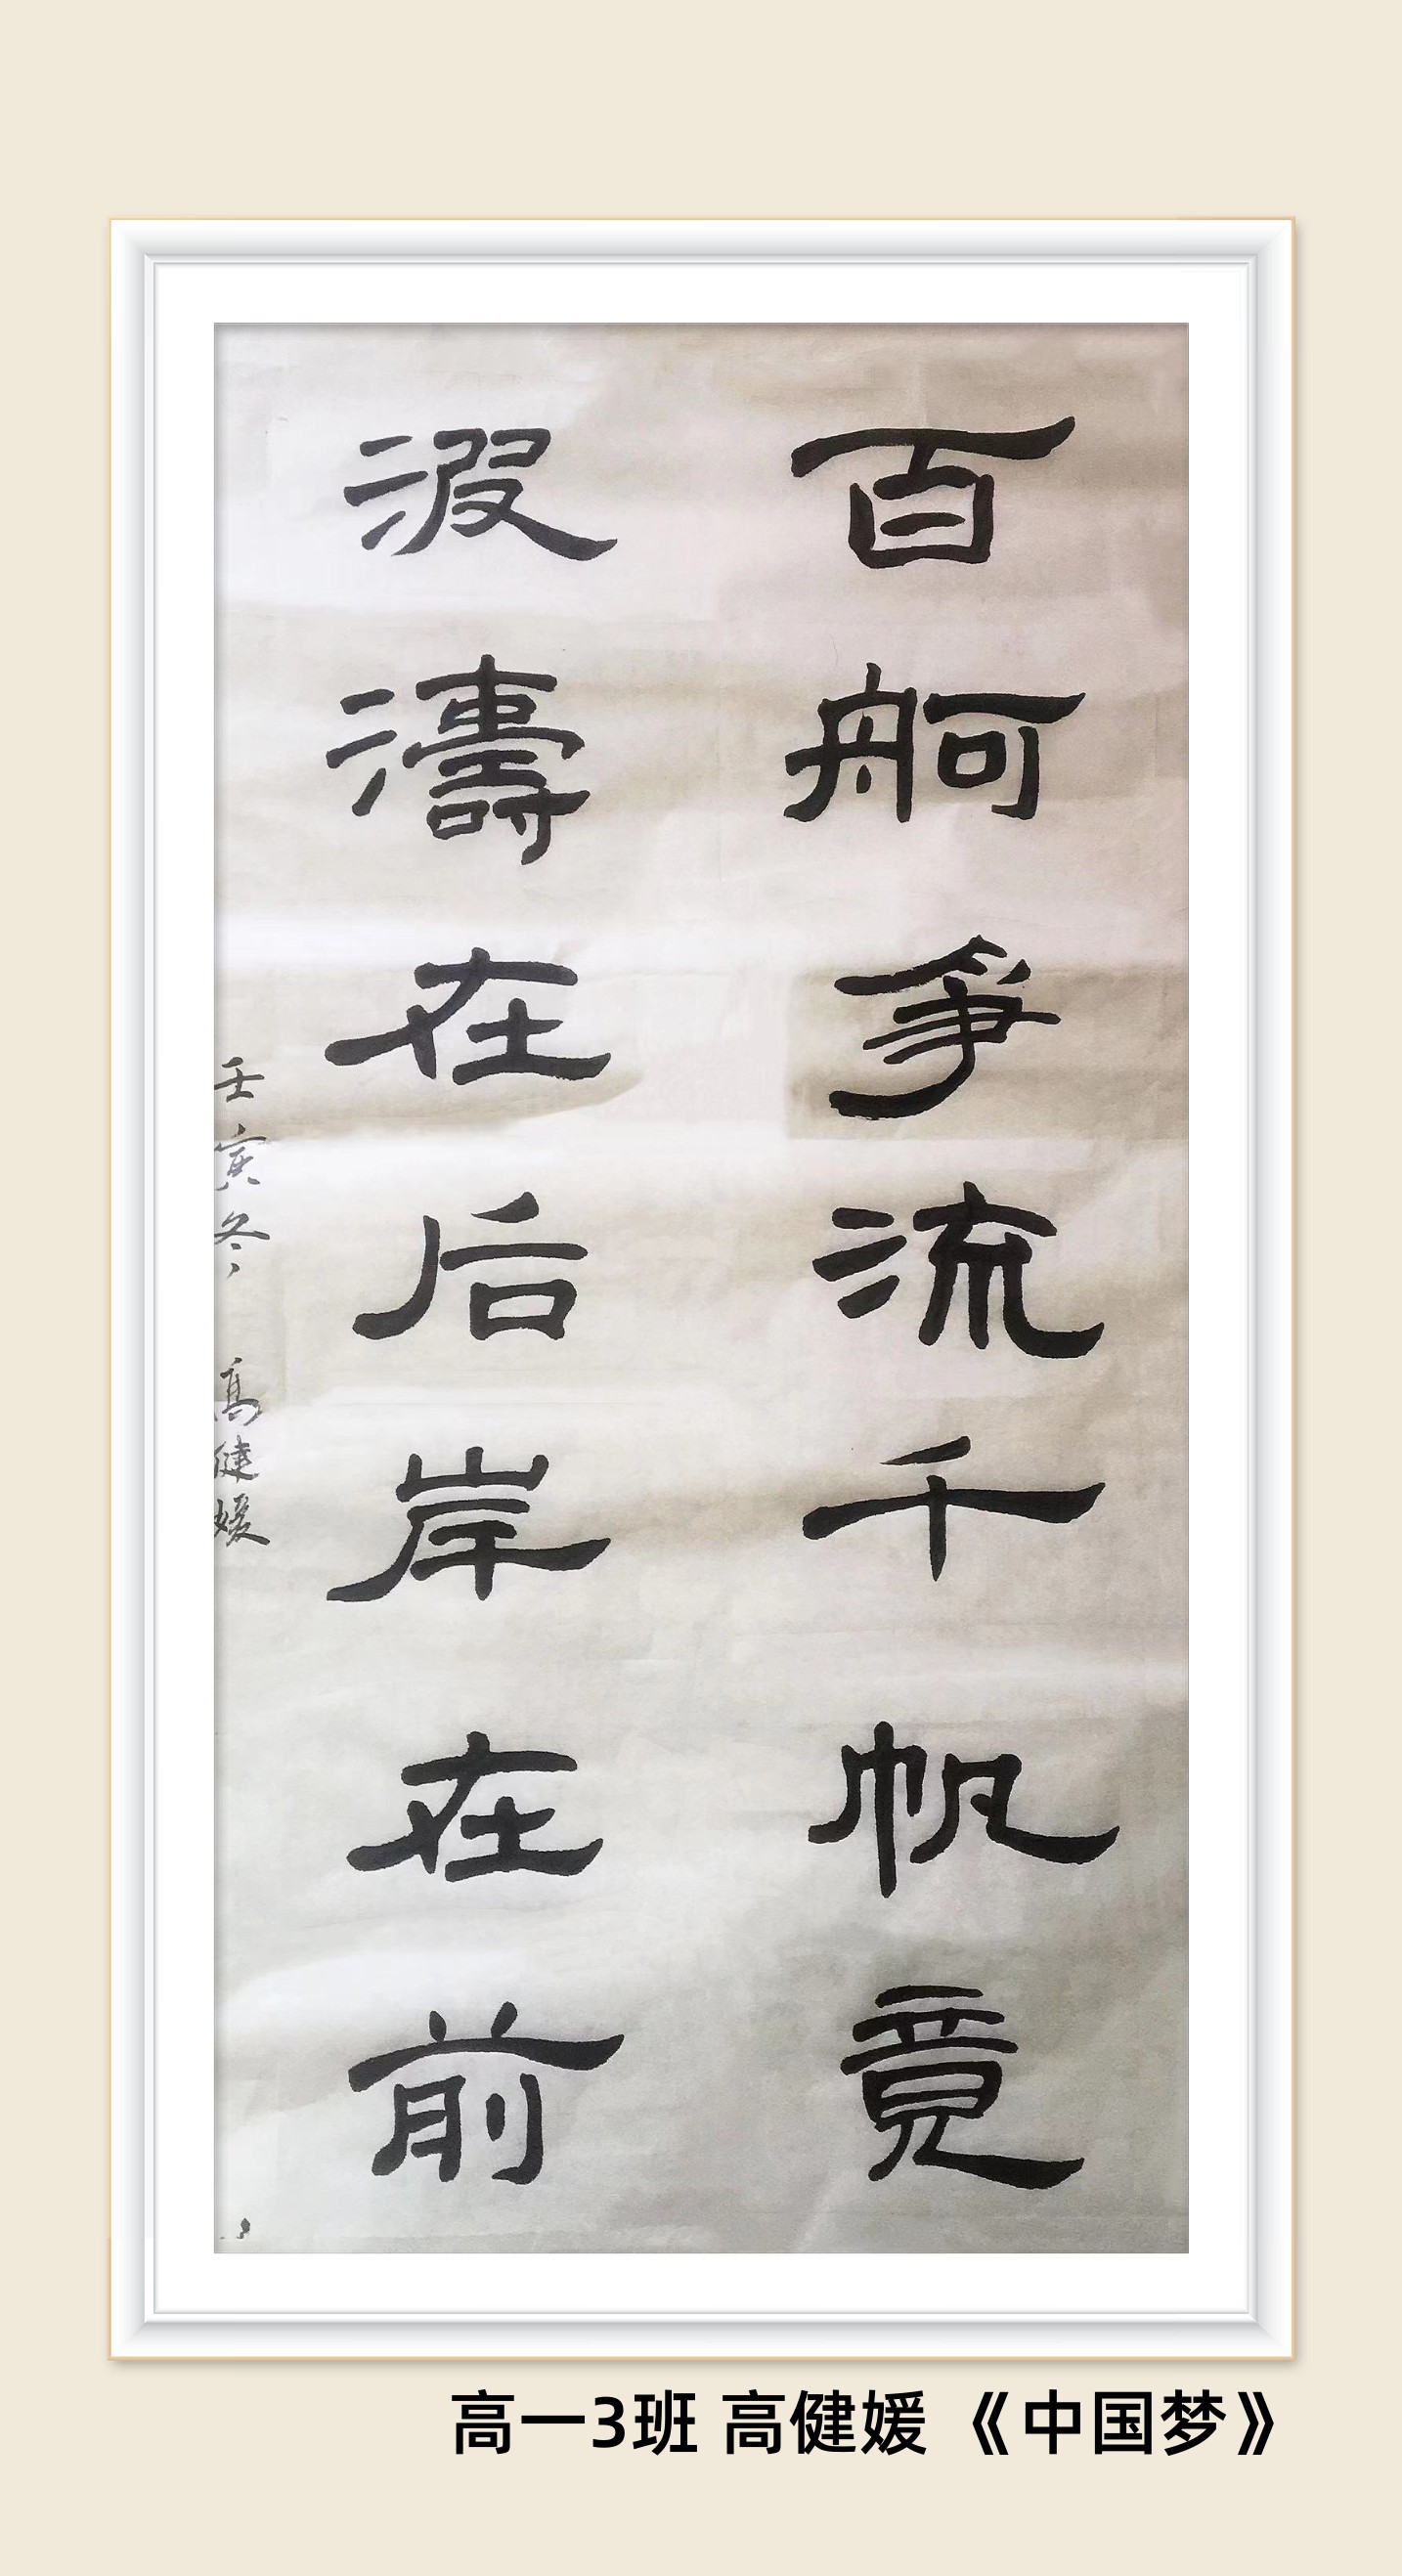 百舸爭流千帆竟
波濤在后岸在前
壬寅冬 高健媛
高一3班 高健媛 《中国梦》